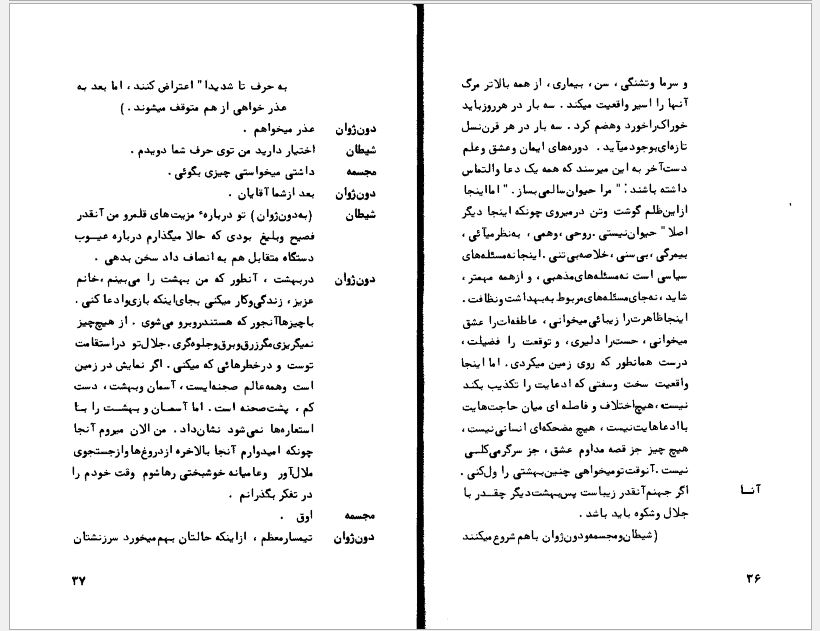 و سرما وتشنگی ، سن ، بیماری ، از همه بالاتر مرگ
آنها را اسیر واقعیت میکند . سه بار در هرروزباید
خوراک‌راخورد وهضم کرد . سه بار در هر قرن‌نسل
تازه‌ای‌بوجودمیآید . دوره‌های ایمان وعشق وعلم
دست‌آخر به این میرسند که همه یک دعا والتماس
داشته باشند : " مرا حیوان‌سالمی‌بساز . " امااینجا
ازاین‌ظلم گوشت وتن درمیروی چونکه اینجا دیگر
اصلا " حیوان‌نیستی .روحی ،وهمی ، به‌نظرمیآئی ،
بیمرگی ،بی‌سنی ،خلاصه‌بی‌تنی .اینجانه‌مسئله‌های
سیاسی است نه‌مسئله‌های‌مذهبی ، وازهمه مهمتر ،
شاید ،نه‌جای‌مسئله‌های‌مربوط به‌بهداشت‌ونظافت .
اینجاظاهرت‌را زیبائی‌میخوانی ، عاطفه‌ات‌را عشق
میخوانی ، حست‌را دلیری ، و توقعت را فضیلت ،
درست همانطور که روی زمین میکردی . اما اینجا
واقعیت سخت وسفتی که ادعایت را تکذیب بکند
نیست ،هیچ‌اختلاف و فاصله ای میان حاجت‌هایت
باادعاهایت‌نیست ، هیچ مضحکه‌ای انسانی‌نیست ،
هیچ چیز جز قصه مداوم عشق ، جز سرگرمی‌کلسی
نیست .آنوقت‌تومیخواهی چنین‌بهشتی را ول‌کنی .
آنا اگر جهنم‌آنقدر زیباست پس‌بهشت‌دیگر چقـدر با
جلال وشکوه باید باشد .
(شیطان‌ومجسمه‌ودون‌ژوان باهم شروع‌میکنند
۳۶
به حرف تا شدیدا " اعتراض کنند ، اما بعد به
عذر خواهی از هم متوقف میشوند . )
دون‌ژوان عذر میخواهم .
شیطان اختیار دارید من توی حرف شما دویدم .
مجسمه داشتی میخواستی چیزی بگوئی .
دون‌ژوان بعد ازشما آقایان .
شیطان (به‌دون‌ژوان ) تو دربارهٔ مزیت‌های قلمرو من آنقدر
فصیح وبلیغ بودی که حالا میگذارم درباره عیــوب
دستگاه متقابل هم به انصاف داد سخن بدهی .
دون‌ژوان دربهشت ، آنطور که من بهشت را می‌بینم ،خانم
عزیز ، زندگی‌وکار میکنی بجای‌اینکه بازی‌وادعا کنی .
باچیزهاآنجور که هستندروبرو می‌شوی . از هیچ‌چیز
نمیگریزی‌مگرزرق‌وبرق‌وجلوه‌گری .جلال‌تو دراستقامت
توست و درخطرهائی که میکنی . اگر نمایش در زمین
است وهمه‌عالم صحنه‌ایست ، آسمان وبهشت ، دست
کم ، پشت‌صحنه است . اما آسمـان و بهشت را بـا
استعاره‌ها نمی‌شود نشان‌داد . من الان میروم آنجا
چونکه امیدوارم آنجا بالاخره ازدروغ‌هاوازجستجوی
ملال‌آور وعامیانه خوشبختی رهاشوم وقت خودم را
در تفکر بگذرانم .
مجسمه اوق .
دون‌ژوان تیمسارمعظم ، ازاینکه حالتان بهم‌میخورد سرزنشتان
۳۷